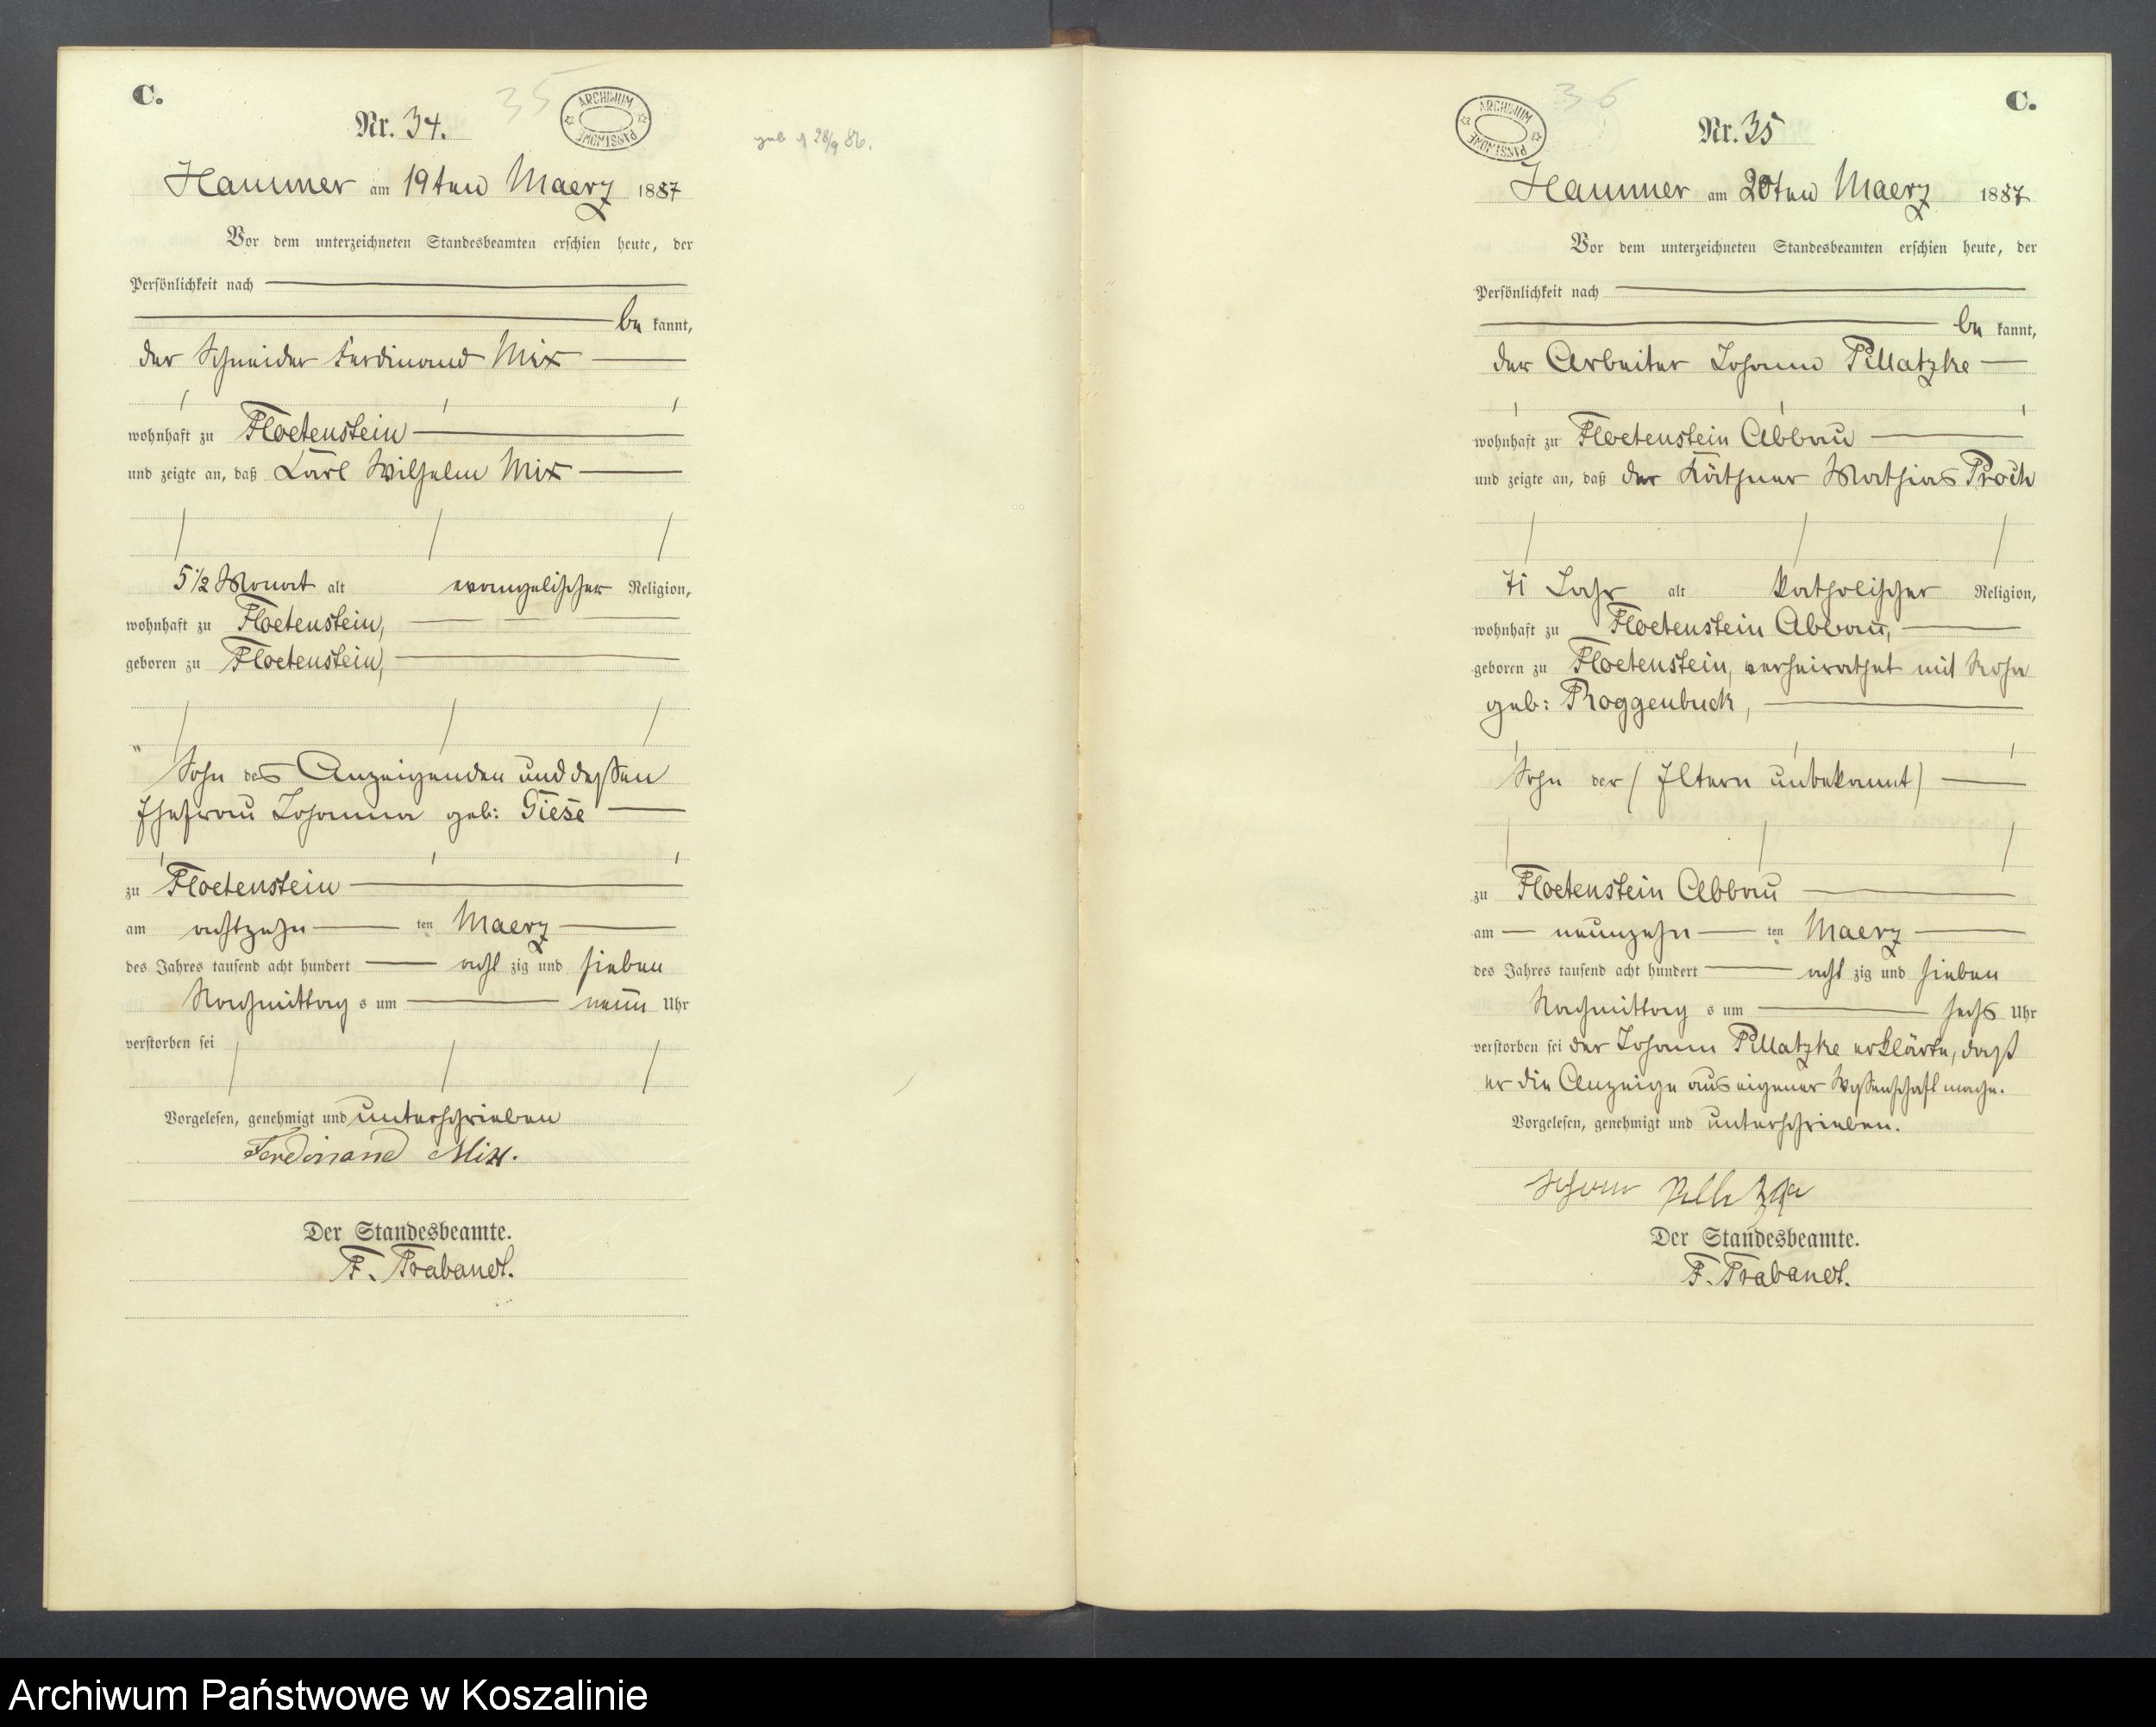 C.
35
Nr. 34.
ARCHIWUM PAŃSTWOWE
geb d 28/9 86.
Hammer am 19ten Maerz 1887
Vor dem unterzeichneten Standesbeamten erschien heute, der
Persönlichkeit nach
be kannt,
der Schneider Ferdinand Mix
wohnhaft zu Floetenstein
und zeigte an, daß Carl Wilhelm Mix
5 1/2 Monat alt evangelischer Religion,
wohnhaft zu Floetenstein,
geboren zu Floetenstein,
Sohn des Anzeigenden und deßen
Ehefrau Johanna geb: Giese
zu Floetenstein
am achtzehn ten Maerz
des Jahres tausend acht hundert acht zig und sieben
Nachmittag s um neun Uhr
verstorben sei
Vorgelesen, genehmigt und unterschrieben
Ferdinand Mix.
Der Standesbeamte.
F. Trabandt.
36
C.
ARCHIWUM PAŃSTWOWE
Nr. 35
Hammer am 20ten Maerz 1887
Vor dem unterzeichneten Standesbeamten erschien heute, der
Persönlichkeit nach
be kannt,
der Arbeiter Johann Pillatzke
wohnhaft zu Floetenstein Abbau
und zeigte an, daß der Käthner Mathias Proch
71 Jahr alt katholischer Religion,
wohnhaft zu Floetenstein Abbau,
geboren zu Floetenstein, verheirathet mit Rosa
geb: Roggenbuck,
Sohn der (Eltern unbekannt)
zu Floetenstein Abbau
am neunzehn ten Maerz
des Jahres tausend acht hundert acht zig und sieben
Nachmittag s um sechs Uhr
verstorben sei der Johann Pillatzke erklärte, daß
er die Anzeige aus eigener Wißenschaft mache.
Vorgelesen, genehmigt und unterschrieben.
Johann Pillatzke
Der Standesbeamte.
F. Trabandt.
Archiwum Państwowe w Koszalinie